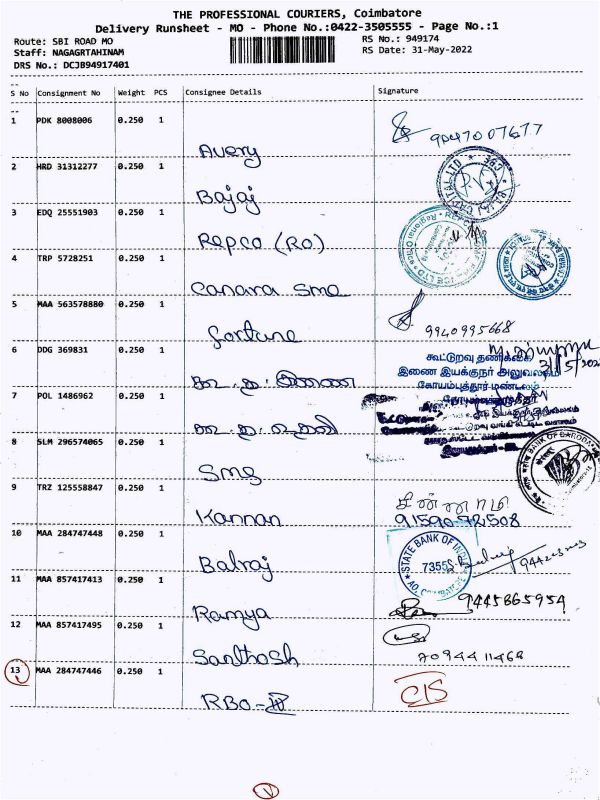 THE PROFESSIONAL COURIERS, Coimbatore
Delivery Runsheet - MO - Phone No.:0422-3505555 - Page No.:1
Route: SBI ROAD MO
RS No.: 949174
Staff: NAGAGRTAHINAM
RS Date: 31-May-2022
DRS No.: DCJB94917401
S No Consignment No Weight PCS Consignee Details Signature
1 PDK 8008006 0.250 1 Avery 9047007677
2 HRD 31312277 0.250 1 Bajaj
3 EDQ 25551903 0.250 1 Repco (RO)
4 TRP 5728251 0.250 1 Canara Sme
5 MAA 563578880 0.250 1 fortune 9940995668
6 DDG 369831 0.250 1 கூ.த.இணை
கூட்டுறவு தணிக்கை
இணை இயக்குநர் அலுவலகம்
கோயம்புத்தூர் மண்டலம்
7 POL 1486962 0.250 1
8 SLM 296574065 0.250 1 Sme
BANK OF BARODA
9 TRZ 125558847 0.250 1 Kannan
91590-72508
10 MAA 284747448 0.250 1 Balraj
STATE BANK OF INDIA
7355
11 MAA 857417413 0.250 1 Ramya 9445865954
12 MAA 857417495 0.250 1 Santhosh 7094411468
13 MAA 284747446 0.250 1 RBO- CIS